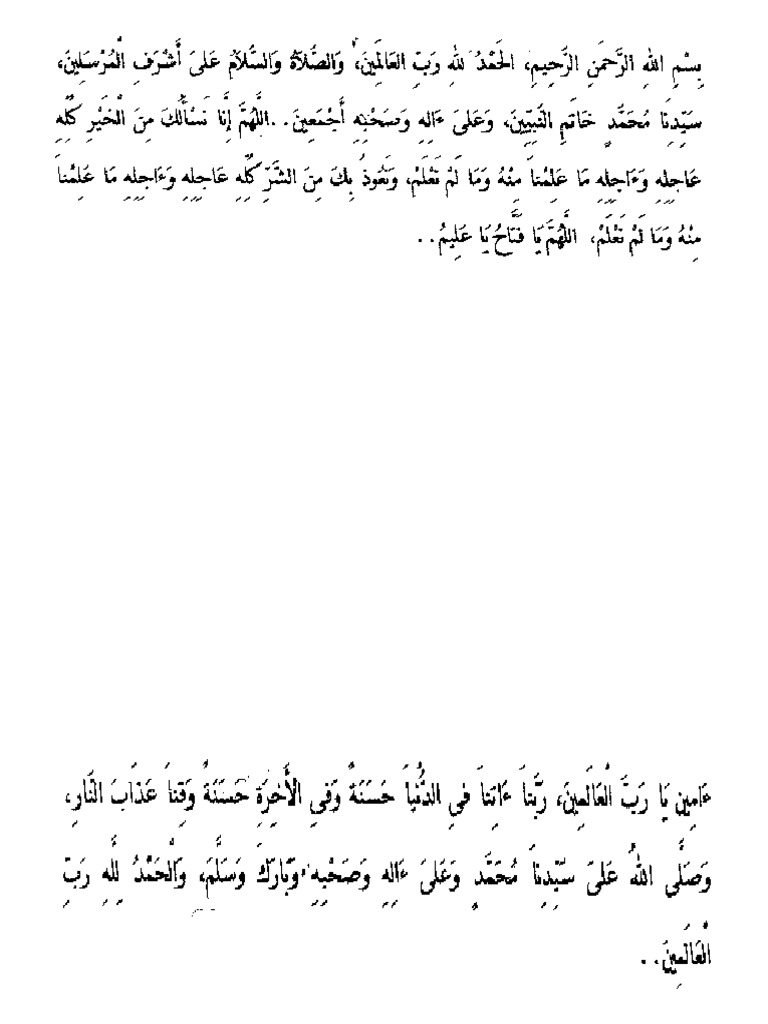 بِسْمِ اللهِ الرَّحْمَنِ الرَّحِيمِ، الْحَمْدُ لِلهِ رَبِّ العَالَمِينَ، وَالصَّلَاةُ وَالسَّلَامُ عَلىَ أَشْرَفِ الْمُرْسَلِينَ،
سَيِّدِنَا مُحَمَّدٍ خَاتَمِ النَّبِيِّينَ، وَعَلىَ ءَالِهِ وَصَحْبِهِ أَجْمَعِينَ. .اللَّهُمَّ إِنَّا نَسْأَلُكَ مِنَ الْخَيْرِ كُلِّهِ
عَاجِلِهِ وَءَاجِلِهِ مَا عَلِمْناَ مِنْهُ وَمَا لَمْ نَعْلَمْ، وَنَعُوذُ بِكَ مِنَ الشَّرِّ كُلِّهِ عَاجِلِهِ وَءَاجِلِهِ مَا عَلِمْناَ
مِنْهُ وَمَا لَمْ نَعْلَمْ، اللَّهُمَّ يَا فَتَّاحُ يَا عَلِيمُ. .
ءَامِين يَا رَبَّ الْعَالَمِينَ، رَبَّناَ ءَاتِناَ فىِ الدُّنْياَ حَسَنَةً وَفىِ الأَخِرَةِ حَسَنَةً وَقِناَ عَذَابَ النَّارِ،
وَصَلَّى اللهُ عَلىَ سَيِّدِناَ مُحَمَّدٍ وَعَلىَ ءَالِهِ وَصَحْبِهِ وَبَارَكَ وَسَلَّمَ، وَالْحَمْدُ لِلَّهِ رَبِّ
الْعَالَمِينَ. .